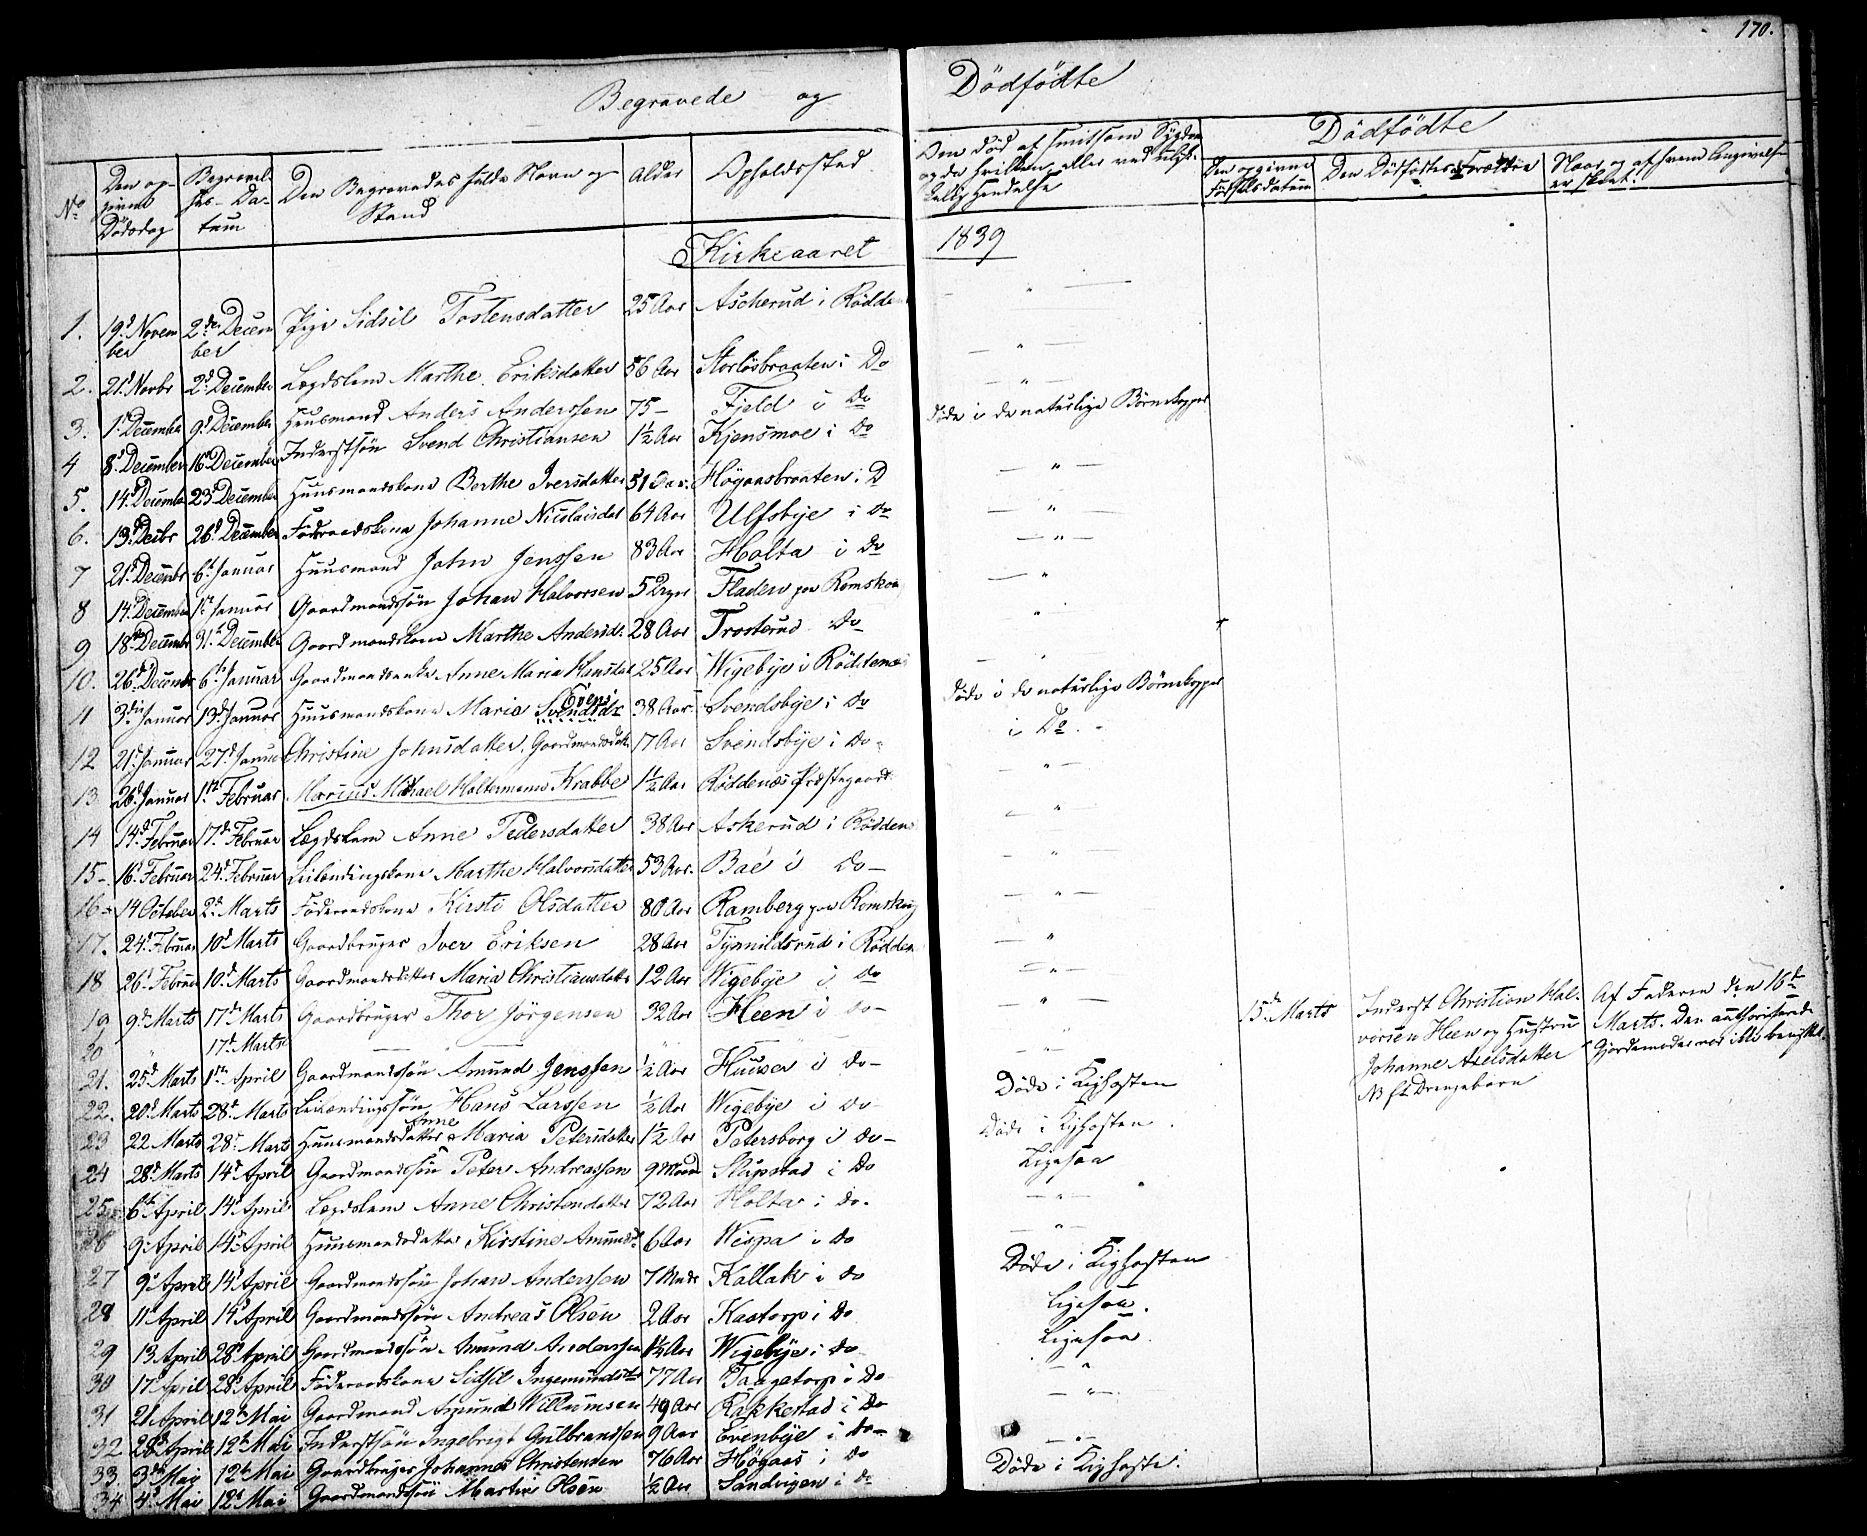 170.
Begravede og Dödfödte
No
Den opgivne Dödsdag
Begravelses-Datum
Den Begravedes fulde Navn og Stand
Alder
Opholdssted
Om död af smitsom Sygdom og da hvilken, eller ved
Dödfödte
Den opgivne Födselsdatum
Den Dödfödtes Forældre
Naar og af hvem Angivelsen er skeet.
Kirkeaaret 1839
1. 19d November 2den December Pige Sidsil Tostensdatter 25 Aar Ascherud i Rödden
2. 21d Novbr 2d December Lægdslem Marthe Eriksdatter 56 Aar Storlösbraaten i Do
3. 1d December 9d December Huusmand Anders Anderssen 75 – Fjeld i Do
4 8d December 16d December Inderstsön Svend Christiansen 1½ Aar Kjensmoe i Do Döde i de naturlige Börnekopper
5. 14d December 23d December Huusmandskone Berthe Iversdatter 51 Aar. Högaasbraaten i D
6. 19d Decbr 26d December Föderaadskone Johanne Nicolaisdat 64 Aar Ulfsbye i do
7 21d Decembr 6t Januar Huusmand John Jenssen 83 Aar Holta i do
8 14d December 1ste Januar Gaardmandssön Johan Halvorsen 5 Dage Fladen paa Römskou
9 18de Decembr 31t December Gaardmandskone Marthe Andersd. 28 Aar Trosterud Do
10. 26d Decembr 6te Januar Gaardmandsenke Anne Maria Hansdat 25 Aar Wigebye i Röddenes
11 3die Januar 13d Januar Huusmandskone Maria Svendsdr 38 Aar Svendsbye i do Döde i de naturlige Börnekopper
12 21d Januar 27d Januar Christine Johnsdatter, Gaardmandsdatt 17 Aar Svendsbye i Do. i Do. -
13 26d Januar 1ste Februar Marcus Michael Haltermann Krabbe 1½ Aar Röddenæs Præstegaard
14 14d Februar 17d Februar Lægdslem Anne Pedersdatter 38 Aar Askerud i Rödden
15 16d Februar 24d Februar Leilændingskone Marthe Halvorsdatter 53 Aar. Baé i do –
16 14 October 2d Marts Föderaadskone Kirsti Olsdatter 80 Aar Ramberg paa Römskoug
17. 24d Februar 10d Marts Gaardbruger Iver Eriksen 28 Aar Tÿmildsrud i Rödden
18 26d Februar 10d Marts Gaardmandsdatter Maria Christiansdatter 12 Aar Wigebye i do
19 9d Marts 17d Marts Gaardbruger Thor Jörgensen 32 Aar Heen i do –
20 17d Marts 15de Marts Inderst Christian Halvorsen Heen og Hustru Johanne Axelsdatter Af Faderen den 16de Marts. Den authoriserede Gjordemoder var ikke benyttet.
Drengebörn
21. 25d Marts 1ste April Gaardmandssön Amund Jenssen ½ Aar Huuser i do –
22. 20d Marts 28d Marts Leilændingssön Hans Larssen ½ Aar Wigebye i do Döde i Kighosten
23 22 Marts 28d Marts Huusmandsdatter Anne Maria Petersdatter 1½ Aar Petersborg i do – Döde i Kighosten
24 28d Marts 14d April Gaardmandssön Peter Andreassen 9 Maan Slupstad i Do Ligesaa
25 6te April 14d April Lægdslem Anne Christensdatter 72 Aar Holta i do.
26 9d April 14d April Huusmandsdatter Kirstine Amunds 6 Aar Wispa i do
27 9d April 14d April Gaardmandssön Johan Anderssen 7 Mndr Kallak i do Döde i Kighosten
28 11 April 14d April Gaardmandssön Andreas Olsen 2 Aar Kastorp i do Ligesaa.
29 13 April 28d April Gaardmandssön Amund Anderssen 1½ Aar Wigebye i do Ligesaa.
30 17d April 28d April Föderaadskone Sidsil Ingemundsdtr 77 Aar Taagetorp i Do
31 21 April 12te Mai Gaardmand Amund Willumsen 49 Aar Rakkestad i Do
32 28d April 12te Mai Inderstsön Ingebrigt Gulbrandssen 9 Aar Evenbye i do –
33 3die Mai 12te Mai Gaardbruger Johannes Christensen 76 Aar Högaas i do
34 4d Mai 12d Mai Gaardmandssön Martin Olsen ½ Aar Sandvigen i do Döde i Kighoste.